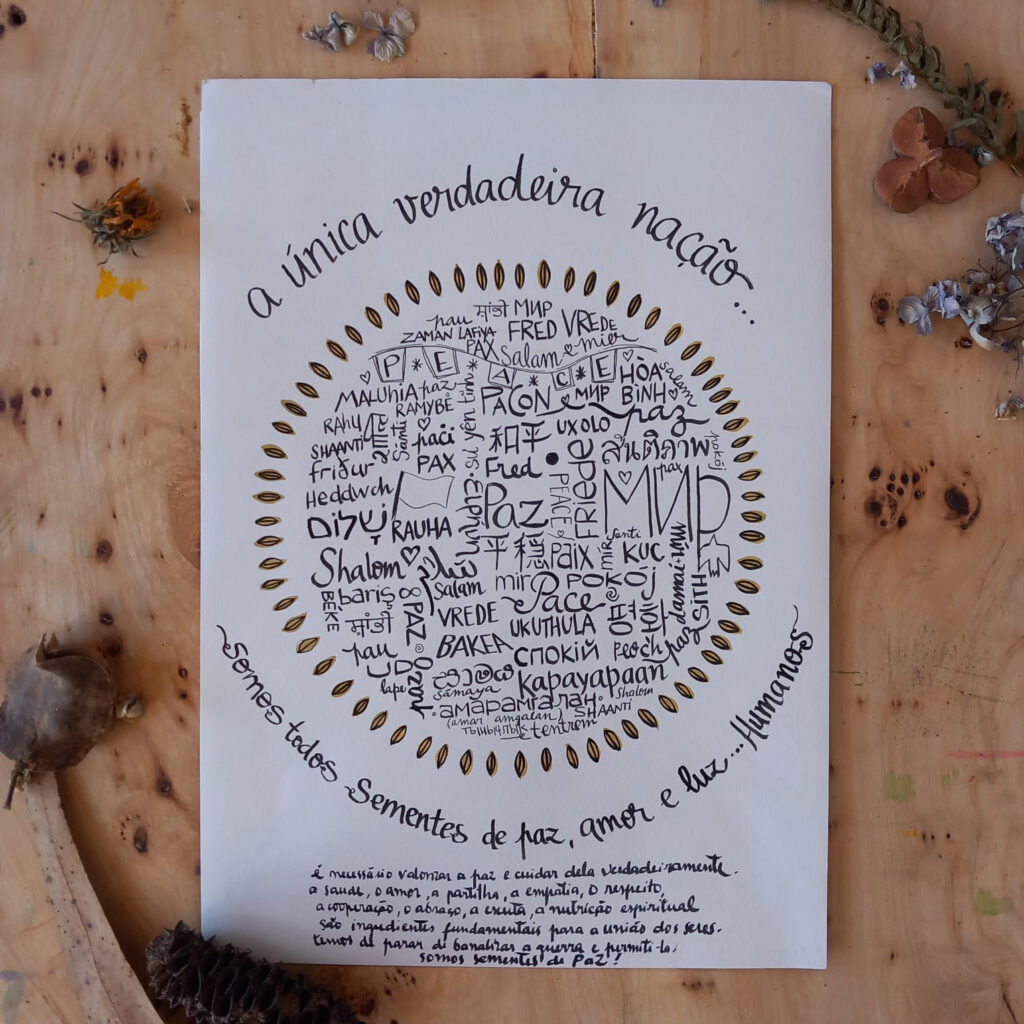 a única verdadeira nação...
pau सांती МИР
ZAMAN LAFIYA FRED VREDE
PAX salam e mier
PEACE
MALUHIA paz PACON e МИР HÒA BÌNH salam
RAHU RAMYBĖ sự yên tĩnh paz
SHAANTI Sámti paĉi 和平 UXOLO สันติภาพ pokój
friður PAX Fred FRIEDE pax
Heddwch Paz PEACE МИР
שָׁלוֹם RAUHA
Shalom 平和 Paix MIR Santi KUC
BÉKE bariş Salam mir POKÓJ damai
सांती PAZ VREDE Pace SÌTH
pau BAKEA UKUTHULA
СПОКІЙ peoch paz
lape Ozoni සාමය kapayapaan
sāmaya
амар амгалан Shalom
(amar amgalan) SHAANTI
e tentrem
Somos todos sementes de paz, amor e luz... Humanos
é necessário valorizar a paz e cuidar dela verdadeiramente.
a saude, o amor, a partilha, a empatia, o respeito,
a cooperação, o abraço, a escuta, a nutrição espiritual
são ingredientes fundamentais para a união dos seres.
temos de parar de banalizar a guerra e permiti-la,
somos sementes de PAZ!